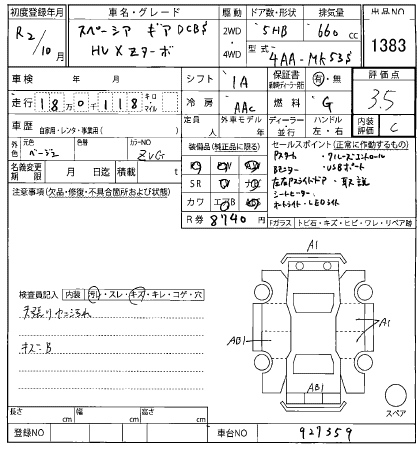 初度登録年月
R2/10月
車名・グレード
スペーシア ギア DCBS
HV XZターボ
駆動
2WD
4WD
ドア数・形状
5HB
排気量
660 cc
型式
4AA-MK53S
出品NO
1383
車検 年 月
シフト
IA
保証書
新車時ディーラー発行
有・無
評価点
3.5
走行
18万0千118
キロ
マイル
冷房
AAC
燃料
G
車歴
自家用・レンタ・事業用( )
定員
人
外車モデル
年
ディーラー
並行
ハンドル
左・右
内装評価
C
外色
元色
ベージュ
色
カラーNO
ZVG
装備品(純正品に限る)
セールスポイント(正常に作動するもの)
名義変更期限
月 日迄
積載
t
注意事項(欠品・修復・不具合箇所および状態)
SR
カワ エアB
R券 8740円
Pスタート ・クルーズコントロール
Bモニター ・USBポート
左右Pスライドドア ・取説
シートヒーター
オートライト・LEDライト
Fガラス トビ石・キズ・ヒビ・ワレ・リペア跡
検査員記入
内装
汚レ・スレ・キズ・キレ・コゲ・穴
キズB
A1
A1
AB1
AB1
スペア
長さ cm
幅 cm
高さ cm
登録NO
車台NO
927359